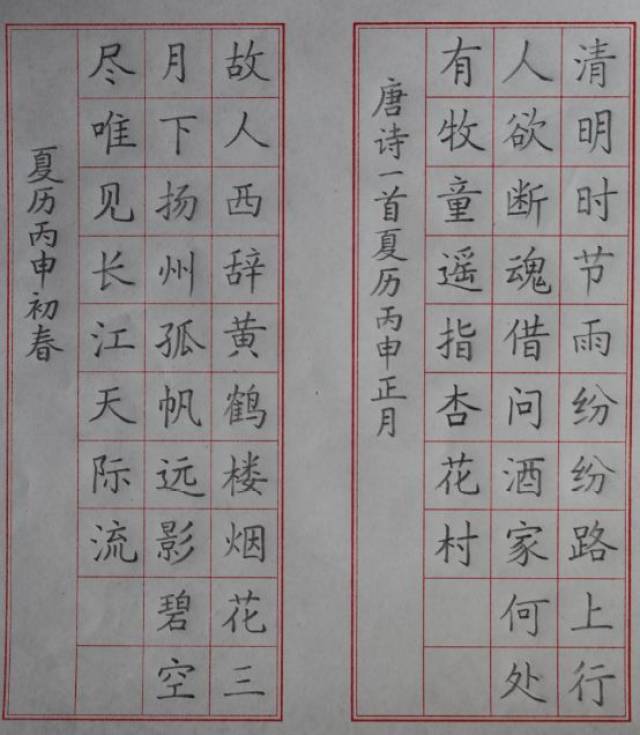 清明时节雨纷纷路上行
人欲断魂借问酒家何处
有牧童遥指杏花村
唐诗一首夏历丙申正月
故人西辞黄鹤楼烟花三
月下扬州孤帆远影碧空
尽唯见长江天际流
夏历丙申初春